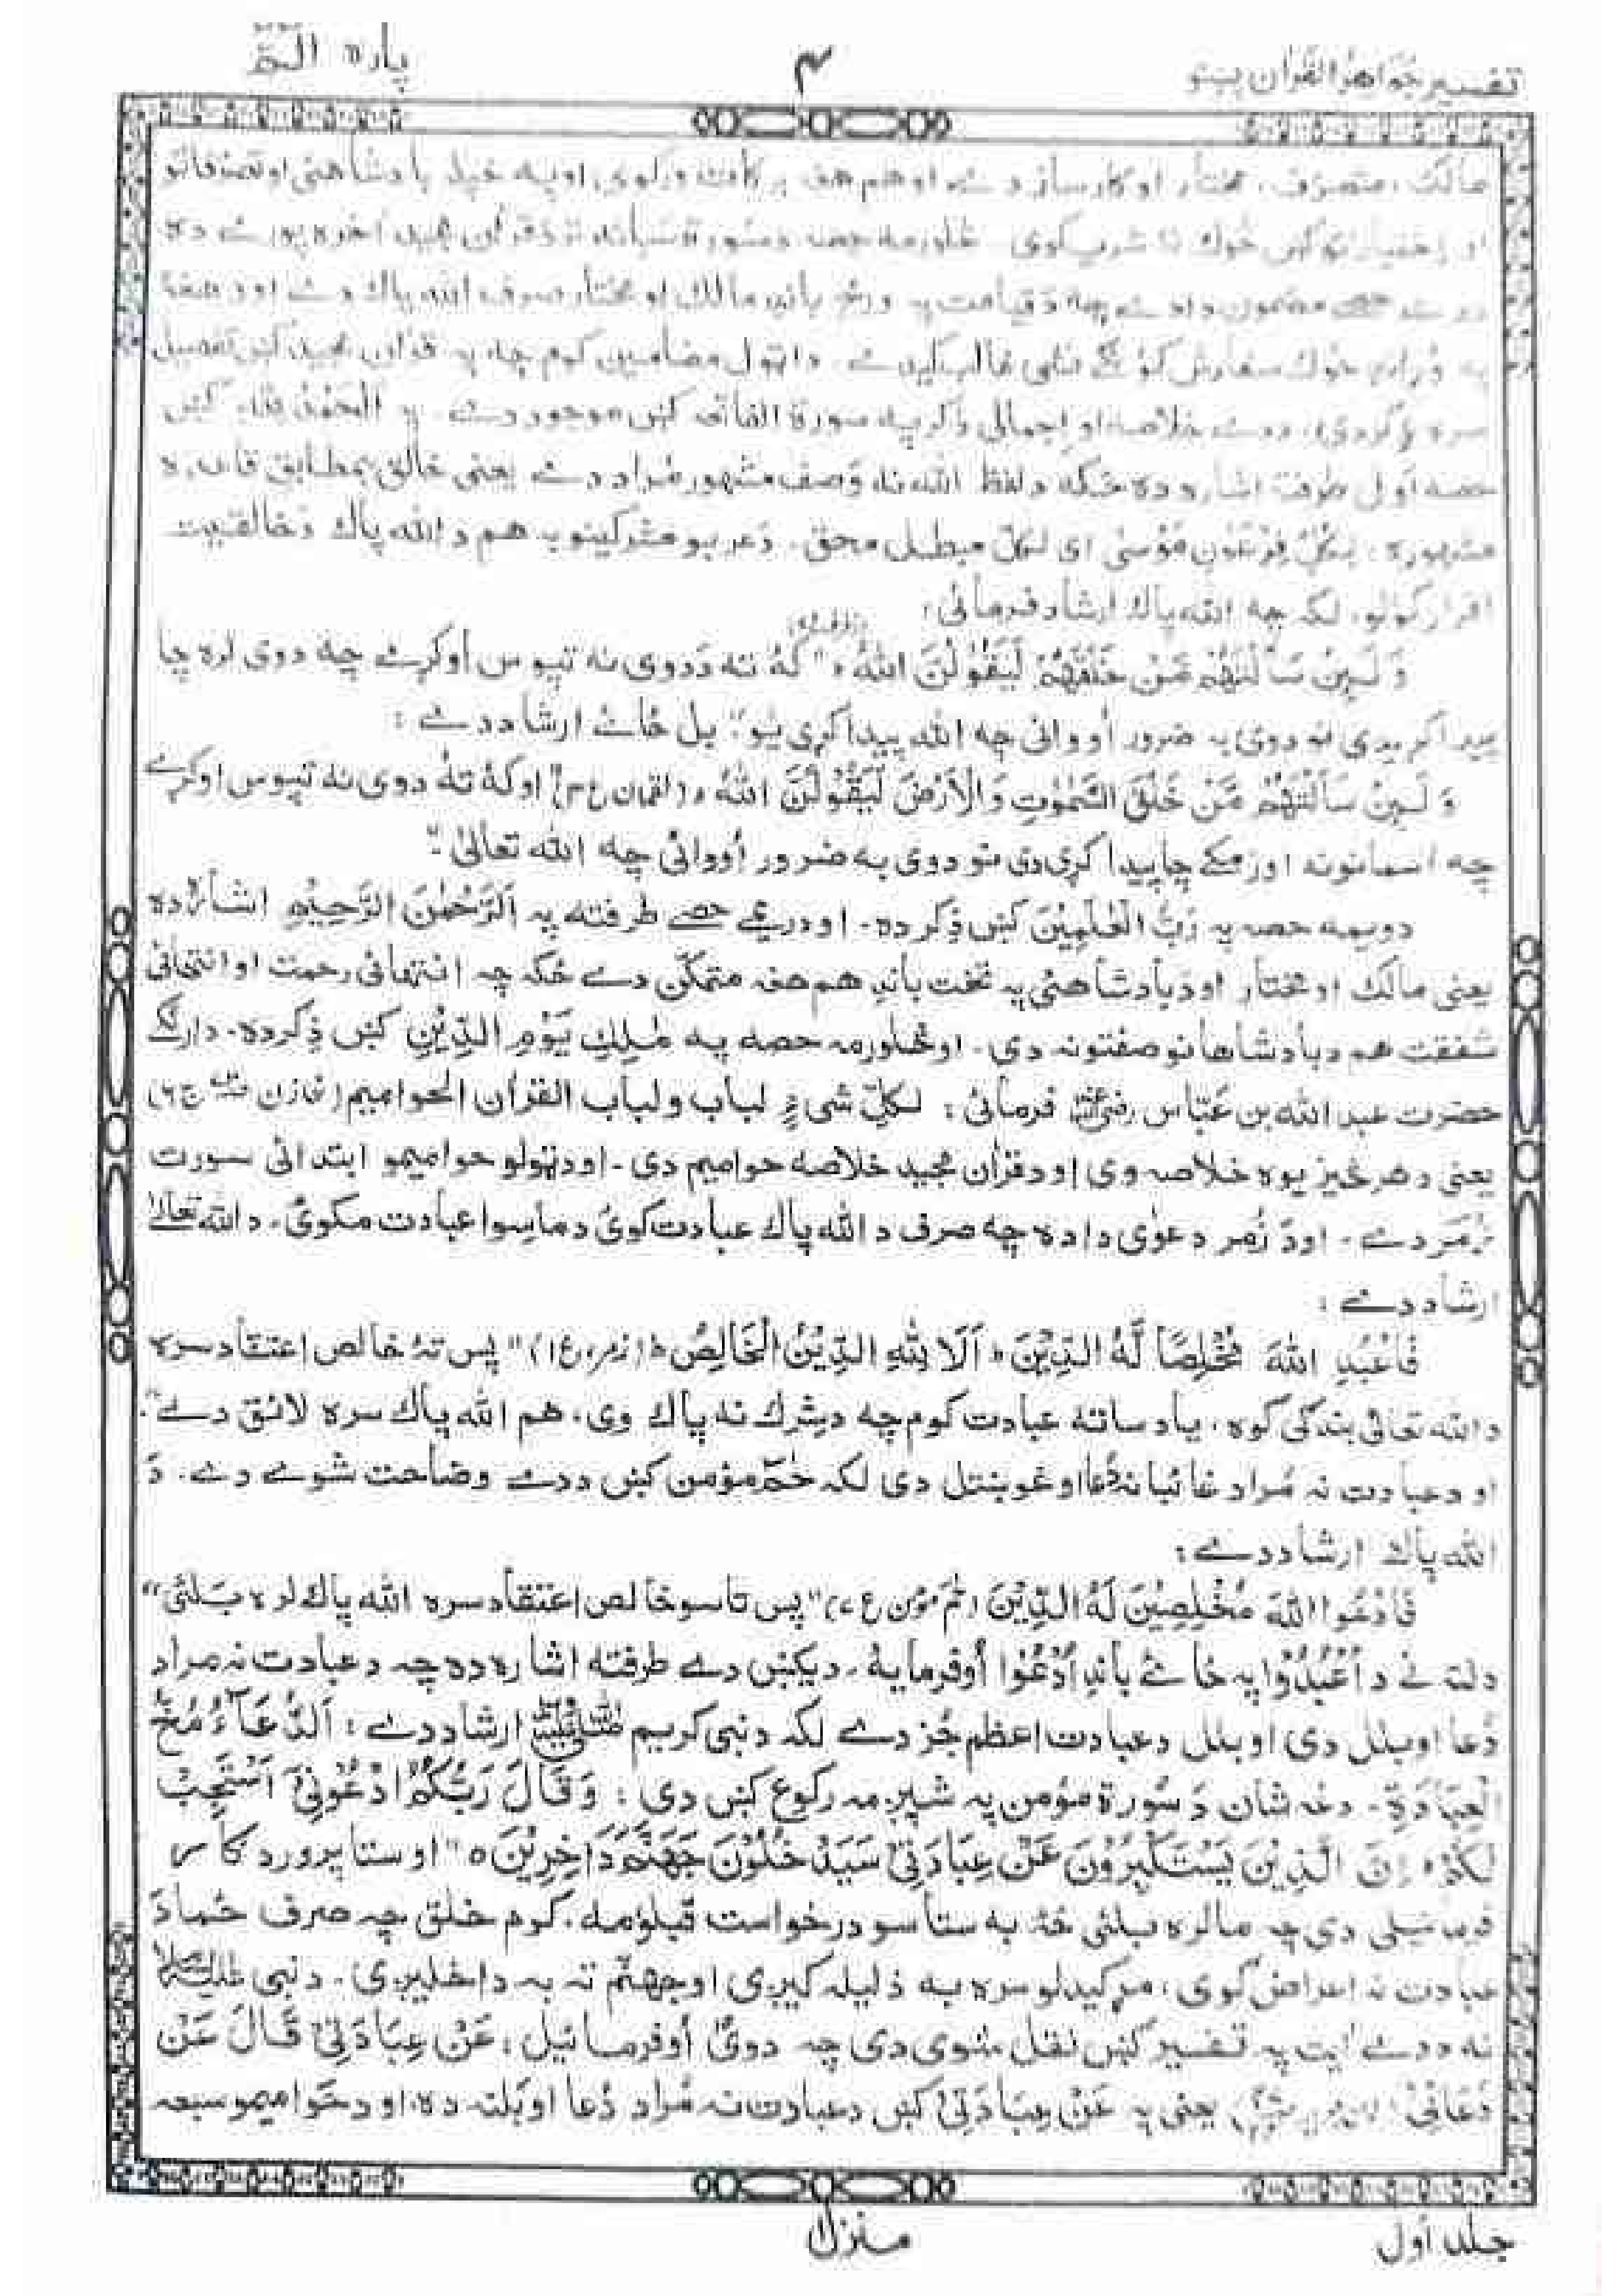 تفسیر جواهر القرآن پښتو
۴
پاره الٓمّٓ
مالک، متصرف، مختار او کارساز دے او هم هغه برکات ورکوی، او په خپله بادشاهئ او تصرفاتو
او اختیاراتو کښ څوک نۀ شریکوی. څلورمه حصه د سورة سبا نه تر د قرآن مجید اخره پورے ده
دے حصے مضمون دا دے چه د قیامت په ورځ باندے مالک او مختار صرف الله پاک دے او د هغۀ
په وړاندے څوک سفارش کوونکے نشی غالب کیدے. دا ټول مضامین کوم چه په قرآن مجید کښ تفصیل
سره ذکر دی، ددے خلاصه او اجمالی ذکر په سورة الفاتحه کښ موجود دے. په اَلْحَمْدُ لِلّٰهِ کښ
حصه اولی طرفته اشاره ده ځکه د لفظ الله نه وصف مشهور مراد دے یعنی خالق بمطابق قاعده
مشهوره: لِکُلِّ فِرْعَوْنٍ مُوْسٰی ای لکل مبطل محق. د عربو مشرکینو به هم د الله پاک د خالقیت
اقرار کولو، لکه چه الله پاک ارشاد فرمائی:
وَلَئِنْ سَاَلْتَهُمْ مَّنْ خَلَقَهُمْ لَیَقُوْلُنَّ اللهُ ۰ "کۀ ته د دوی نه تپوس اوکړے چه دوی لره چا
پیدا کړیدی نو دوی به ضرور اووائی چه الله پیدا کړی یو". بل ځائے ارشاد دے:
وَلَئِنْ سَاَلْتَهُمْ مَّنْ خَلَقَ السَّمٰوٰتِ وَالْاَرْضَ لَیَقُوْلُنَّ اللهُ ۰ (لقمان ع۳) "او کۀ تۀ دوی نه تپوس اوکړے
چه اسمانونه او زمکے چا پیدا کړی دی نو دوی به ضرور اووائی چه الله تعالیٰ"۔
دویمه حصه په رَبِّ الْعٰلَمِیْنَ کښ ذکر ده۔ او دریمے حصے طرفته په اَلرَّحْمٰنِ الرَّحِیْمِ اشاره ده
یعنی مالک او مختار او د بادشاهئ په تخت باندے هم هغه متمکن دے ځکه چه انتهائی رحمت او انتهائی
شفقت هم د بادشاهانو صفتونه دی۔ او څلورمه حصه په مٰلِكِ یَوْمِ الدِّیْنِ کښ ذکر ده۔ دارنګ
حضرت عبد الله بن عبّاس رضی الله عنه فرمائی: لکلّ شیءٍ لباب ولباب القرآن الحوامیم (خازن ج۶)
یعنی د هر څیز یوه خلاصه وی او د قرآن مجید خلاصه حوامیم دی۔ او د ټولو حوامیمو ابتدائی سورت
زُمَر دے۔ او د زُمر دعوٰی دا ده چه صرف د الله پاک عبادت کوئ د ماسوا عبادت مکوئ۔ د الله تعالیٰ
ارشاد دے:
فَاعْبُدِ اللهَ مُخْلِصًا لَّهُ الدِّیْنَ ۰ اَلَا لِلّٰهِ الدِّیْنُ الْخَالِصُ ۰ (زمر ع۱) "پس تۀ خالص اعتقاد سره
د الله تعالیٰ بندگی کوه، یاد ساته عبادت کوم چه د شرک نه پاک وی، هم الله پاک سره لائق دے"۔
او د عبادت نه مراد غائبانه دُعا او غوښتل دی لکه حٰمٓ مؤمن کښ ددے وضاحت شوے دے۔ دَ
الله پاک ارشاد دے:
فَادْعُوا اللهَ مُخْلِصِیْنَ لَهُ الدِّیْنَ (حٰم مؤمن ع۲) "پس تاسو خالص اعتقاد سره الله پاک لره بلئ"
دلته ئے د اُعْبُدُوْا په ځائے باندے اُدْعُوْا اوفرمایۀ۔ دیکښ دے طرفته اشاره ده چه د عبادت نه مراد
دُعا او بلل دی او بلل د عبادت اعظم جُز دے لکه د نبی کریم ﷺ ارشاد دے: اَلدُّعَآءُ مُخُّ
الْعِبَادَةِ۔ دغه شان دَ سُورة مؤمن په شپږمه رکوع کښ دی: وَقَالَ رَبُّكُمُ ادْعُوْنِیْ اَسْتَجِبْ
لَكُمْ ۰ اِنَّ الَّذِیْنَ یَسْتَكْبِرُوْنَ عَنْ عِبَادَتِیْ سَیَدْخُلُوْنَ جَهَنَّمَ دَاخِرِیْنَ ۰ "او ستا پروردګار
فرمائیلی دی چه ما لره بلئ څۀ به ستاسو درخواست قبلومه۔ کوم خلق چه صرف ځما دَ
عبادت نه اعراض کوی، مړ کیدلو سره به ذلیله کیږی او جهنّم ته به داخلیږی۔ د نبی علیه السلام
نه ددے ایت په تفسیر کښ نقل شوی دی چه دوئ اوفرمائیل: عَنْ عِبَادَتِیْ قَالَ عَنْ
دُعَائِیْ یعنی په عَنْ عِبَادَتِیْ کښ د عبادت نه مُراد دُعا او بلنه ده، او د حوامیمو سبعه
جلد اول
منزل